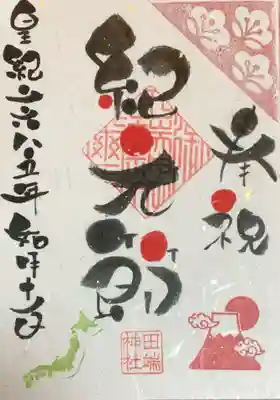 奉祝
紀元節
皇紀二六八五年如月十一日
田端
神社